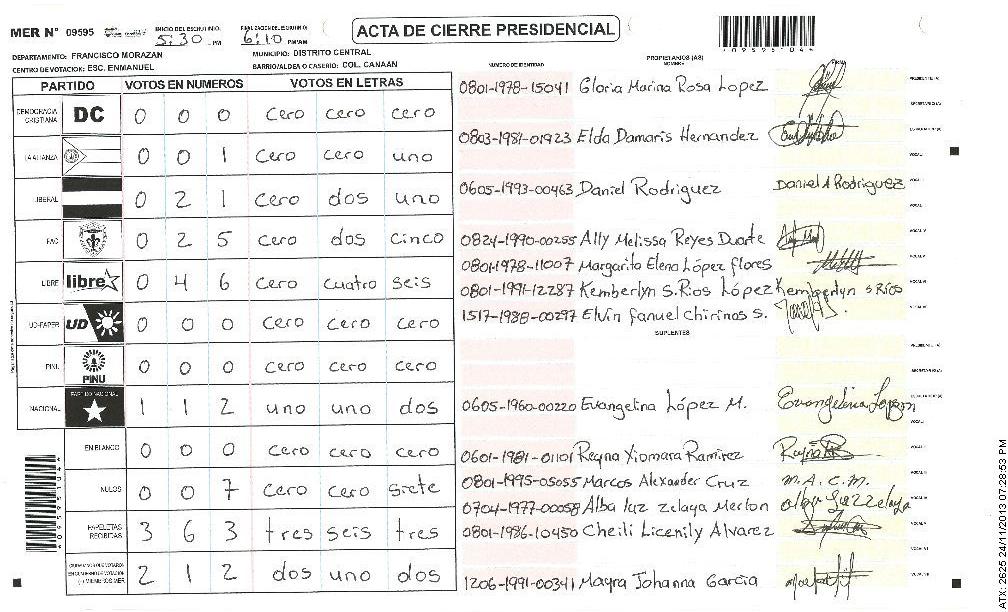 MER N° 09595 INICIO DEL ESCRUTINIO: 5:30 PM FINALIZACION DEL ESCRUTINIO: 6:10 PM/AM ACTA DE CIERRE PRESIDENCIAL
DEPARTAMENTO: FRANCISCO MORAZAN MUNICIPIO: DISTRITO CENTRAL
CENTRO DE VOTACION: ESC. ENMANUEL BARRIO/ALDEA O CASERIO: COL. CANAAN
PARTIDO VOTOS EN NUMEROS VOTOS EN LETRAS
DEMOCRACIA CRISTIANA DC 0 0 0 cero cero cero
LA ALIANZA 0 0 1 cero cero uno
LIBERAL 0 2 1 cero dos uno
PAC 0 2 5 cero dos cinco
LIBRE libre 0 4 6 cero cuatro seis
UD-FAPER UD 0 0 0 cero cero cero
PINU PINU 0 0 0 cero cero cero
NACIONAL PARTIDO NACIONAL 1 1 2 uno uno dos
EN BLANCO 0 0 0 cero cero cero
NULOS 0 0 7 cero cero siete
PAPELETAS RECIBIDAS 3 6 3 tres seis tres
CIUDADANOS QUE VOTARON EN CUADERNO DE VOTACION (+) MIEMBROS MER 2 1 2 dos uno dos
NUMERO DE IDENTIDAD PROPIETARIOS (AS)
NOMBRE
0801-1978-15041 Gloria Marina Rosa Lopez
0803-1981-01923 Elda Damaris Hernandez
0605-1993-00463 Daniel Rodriguez Daniel A Rodriguez
0824-1990-00255 Ally Melissa Reyes Duarte
0801-1978-11007 Margarita Elena López flores
0801-1991-12287 Kemberlyn S. Rios López Kemberlyn S Ríos
1517-1988-00297 Elvin fanuel chirinos S.
SUPLENTES
0605-1960-00220 Evangelina López M. Evangelina Lopez M
0601-1981-01101 Reyna Xiomara Ramirez
0801-1995-05055 Marcos Alexander Cruz M.A.C.M.
0704-1977-00058 Alba luz zelaya Merlon alba luz zelaya
0801-1986-10450 Cheili Licenily Alvarez
1206-1991-00341 Mayra Johanna Garcia
ATX: 2525 24/11/2013 07:28:53 PM